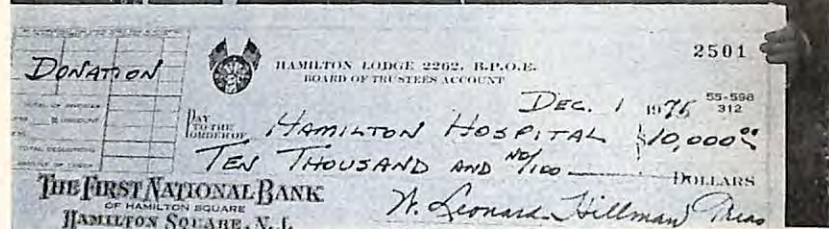 2501
DONATION
HAMILTON LODGE 2262, B.P.O.E.
BOARD OF TRUSTEES ACCOUNT
DEC. 1 1975 55-598
312
PAY
TO THE
ORDER OF HAMILTON HOSPITAL $10,000⁰⁰
TEN THOUSAND AND NO/100 DOLLARS
TOTAL DEDUCTIONS
AMOUNT OF CHECK
THE FIRST NATIONAL BANK
OF HAMILTON SQUARE
HAMILTON SQUARE, N.J.
W. Leonard Hillman Treas